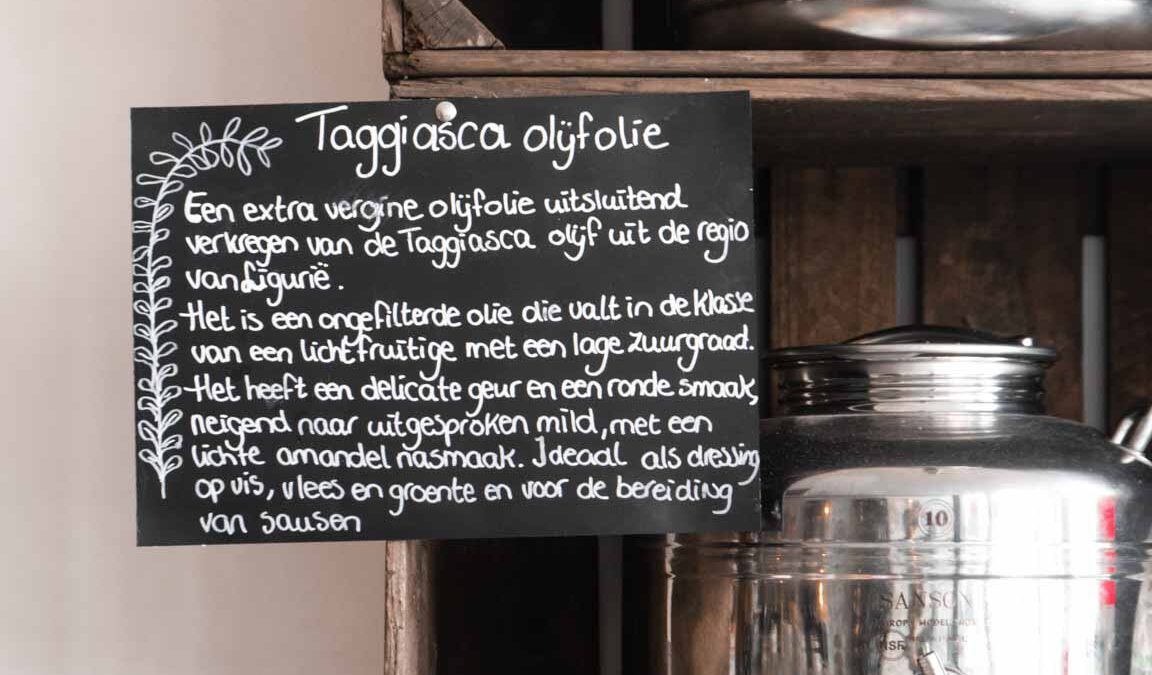 Taggiasca olijfolie
Een extra vergine olijfolie uitsluitend
verkregen van de Taggiasca olijf uit de regio
van Ligurië.
Het is een ongefilterde olie die valt in de klasse
van een licht fruitige met een lage zuurgraad.
Het heeft een delicate geur en een ronde smaak,
neigend naar uitgesproken mild, met een
lichte amandel nasmaak. Ideaal als dressing
op vis, vlees en groente en voor de bereiding
van sausen
10
SANSON
EUROP. MODEL
NSF